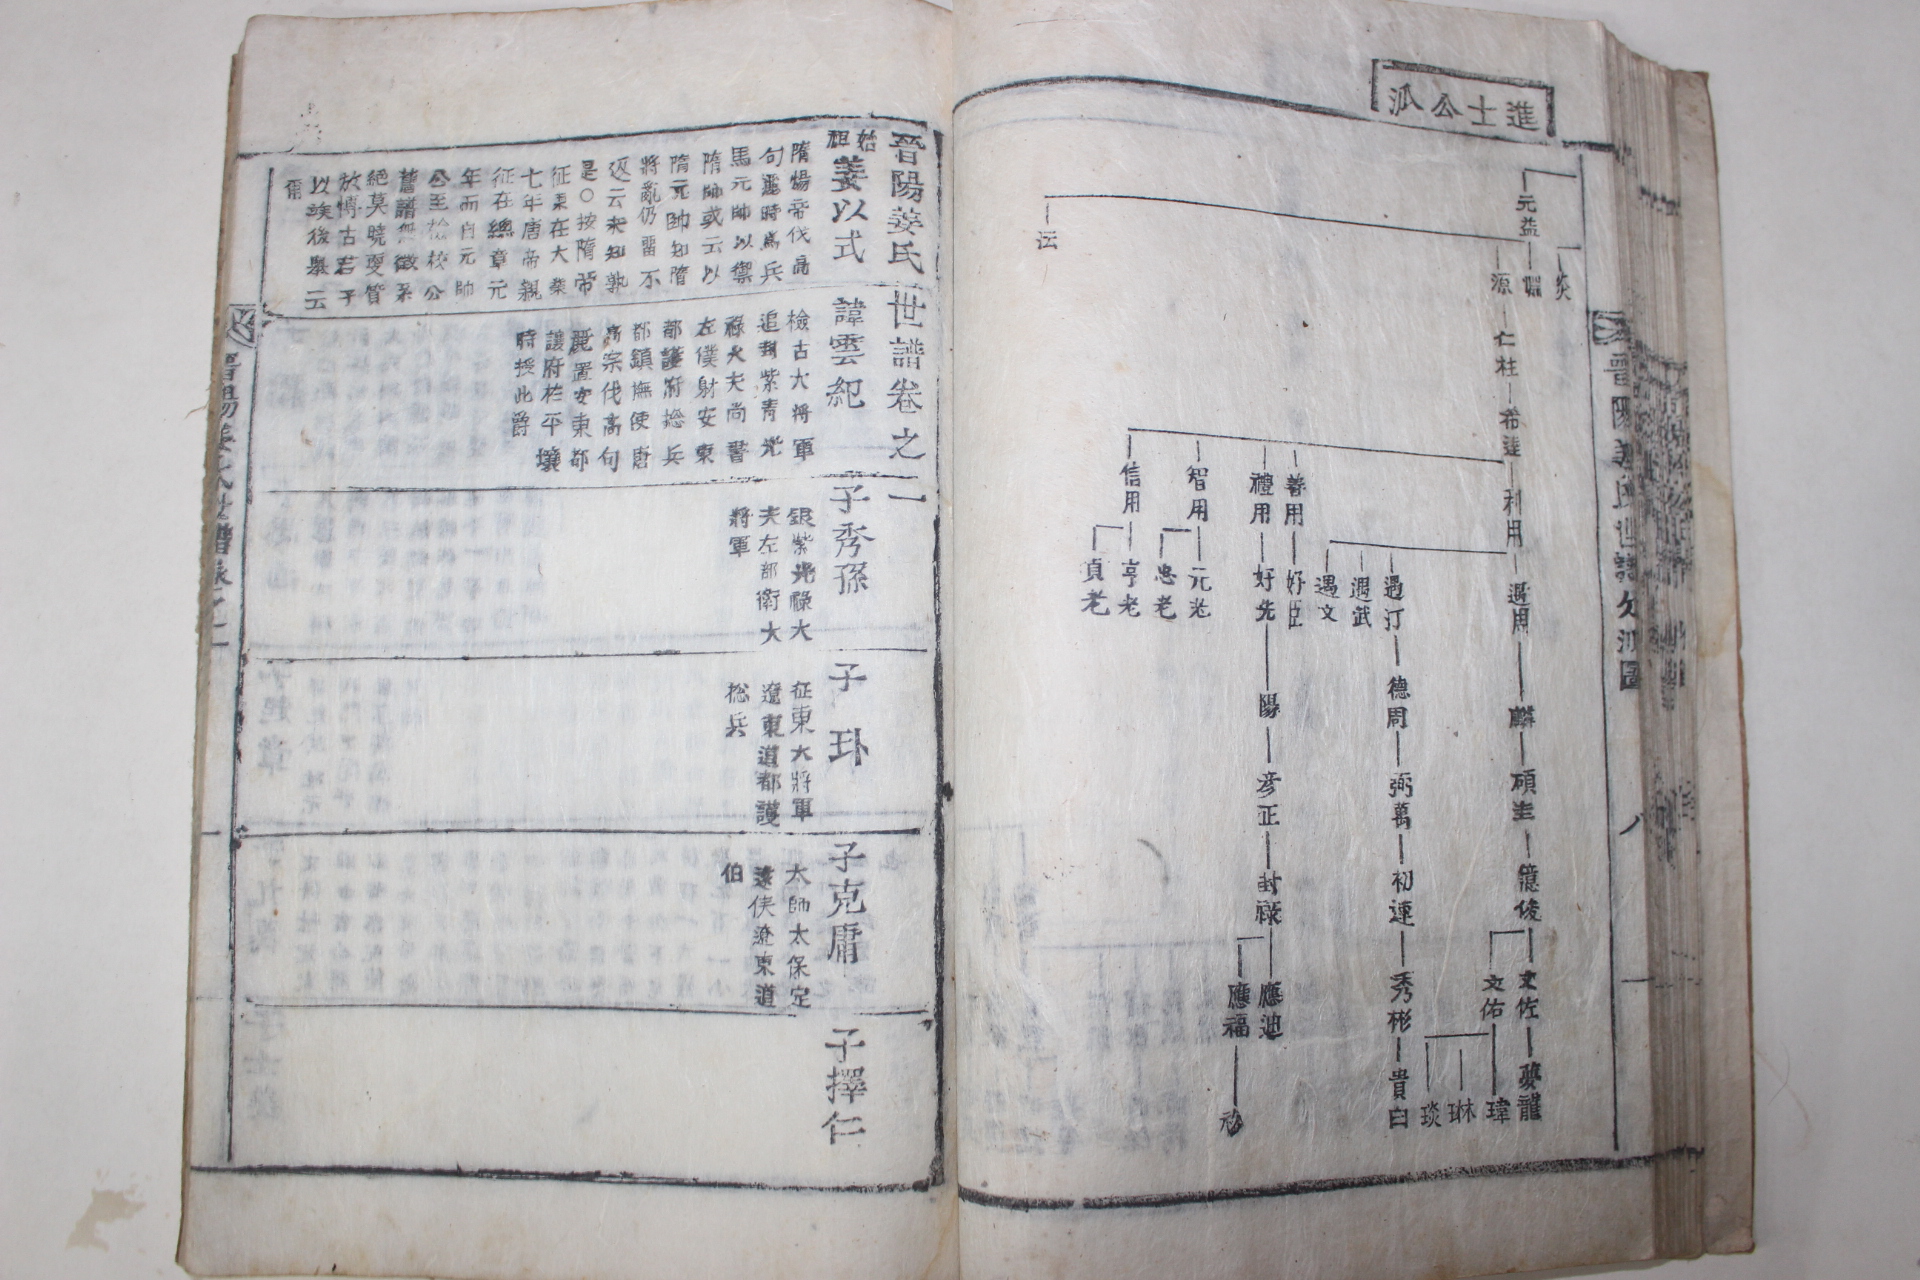 進士公派
元益
炎
源
仁柱
希逹
利用
遇用
麟
碩圭
億俊
文佐
夢龍
文佑
瑋
琳
琰
遇汀
德周
弼萬
初速
秀彬
貴白
遇武
遇文
善用
好臣
禮用
好先
陽
彦正
封祿
應迪
應福
智用
元老
忠老
信用
亨老
貞老
沄
晉陽姜氏世譜分派圖
八
晉陽姜氏世譜卷之二
始祖姜以式
隋煬帝伐高
句麗時爲兵
馬元帥以禦
隋帥或云以
隋元帥知隋
將亂仍留不
返云未知孰
是○按隋帝
征東在大業
七年唐帝親
征在總章元
年而自元帥
公至檢校公
舊譜無徵系
絕莫曉更質
於博古君子
以竢後擧云
爾
諱雲紀
檢古大將軍
追封紫靑光
祿大夫尙書
左僕射安東
都護府捴兵
都鎮撫使唐
高宗伐高句
麗置安東都
護府於平壤
時授此爵
子秀孫
銀紫光祿大
夫左部衛大
將軍
子卦
征東大將軍
遼東道都護
捴兵
子克庸
太師太保定
遠侯遼東道
伯
子擇仁
晉陽姜氏世譜卷之二